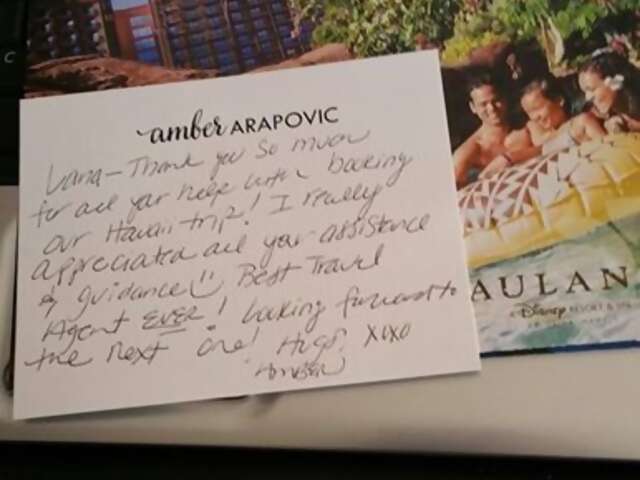 amber ARAPOVIC
Lana - Thank you so much
for all your help with booking
our Hawaii trip! I really
appreciated all your assistance
& guidance Best Travel
Agent EVER! Looking forward to
the next one! Hugs, xoxo
Amber
AULAN
Disney RESORT & SPA